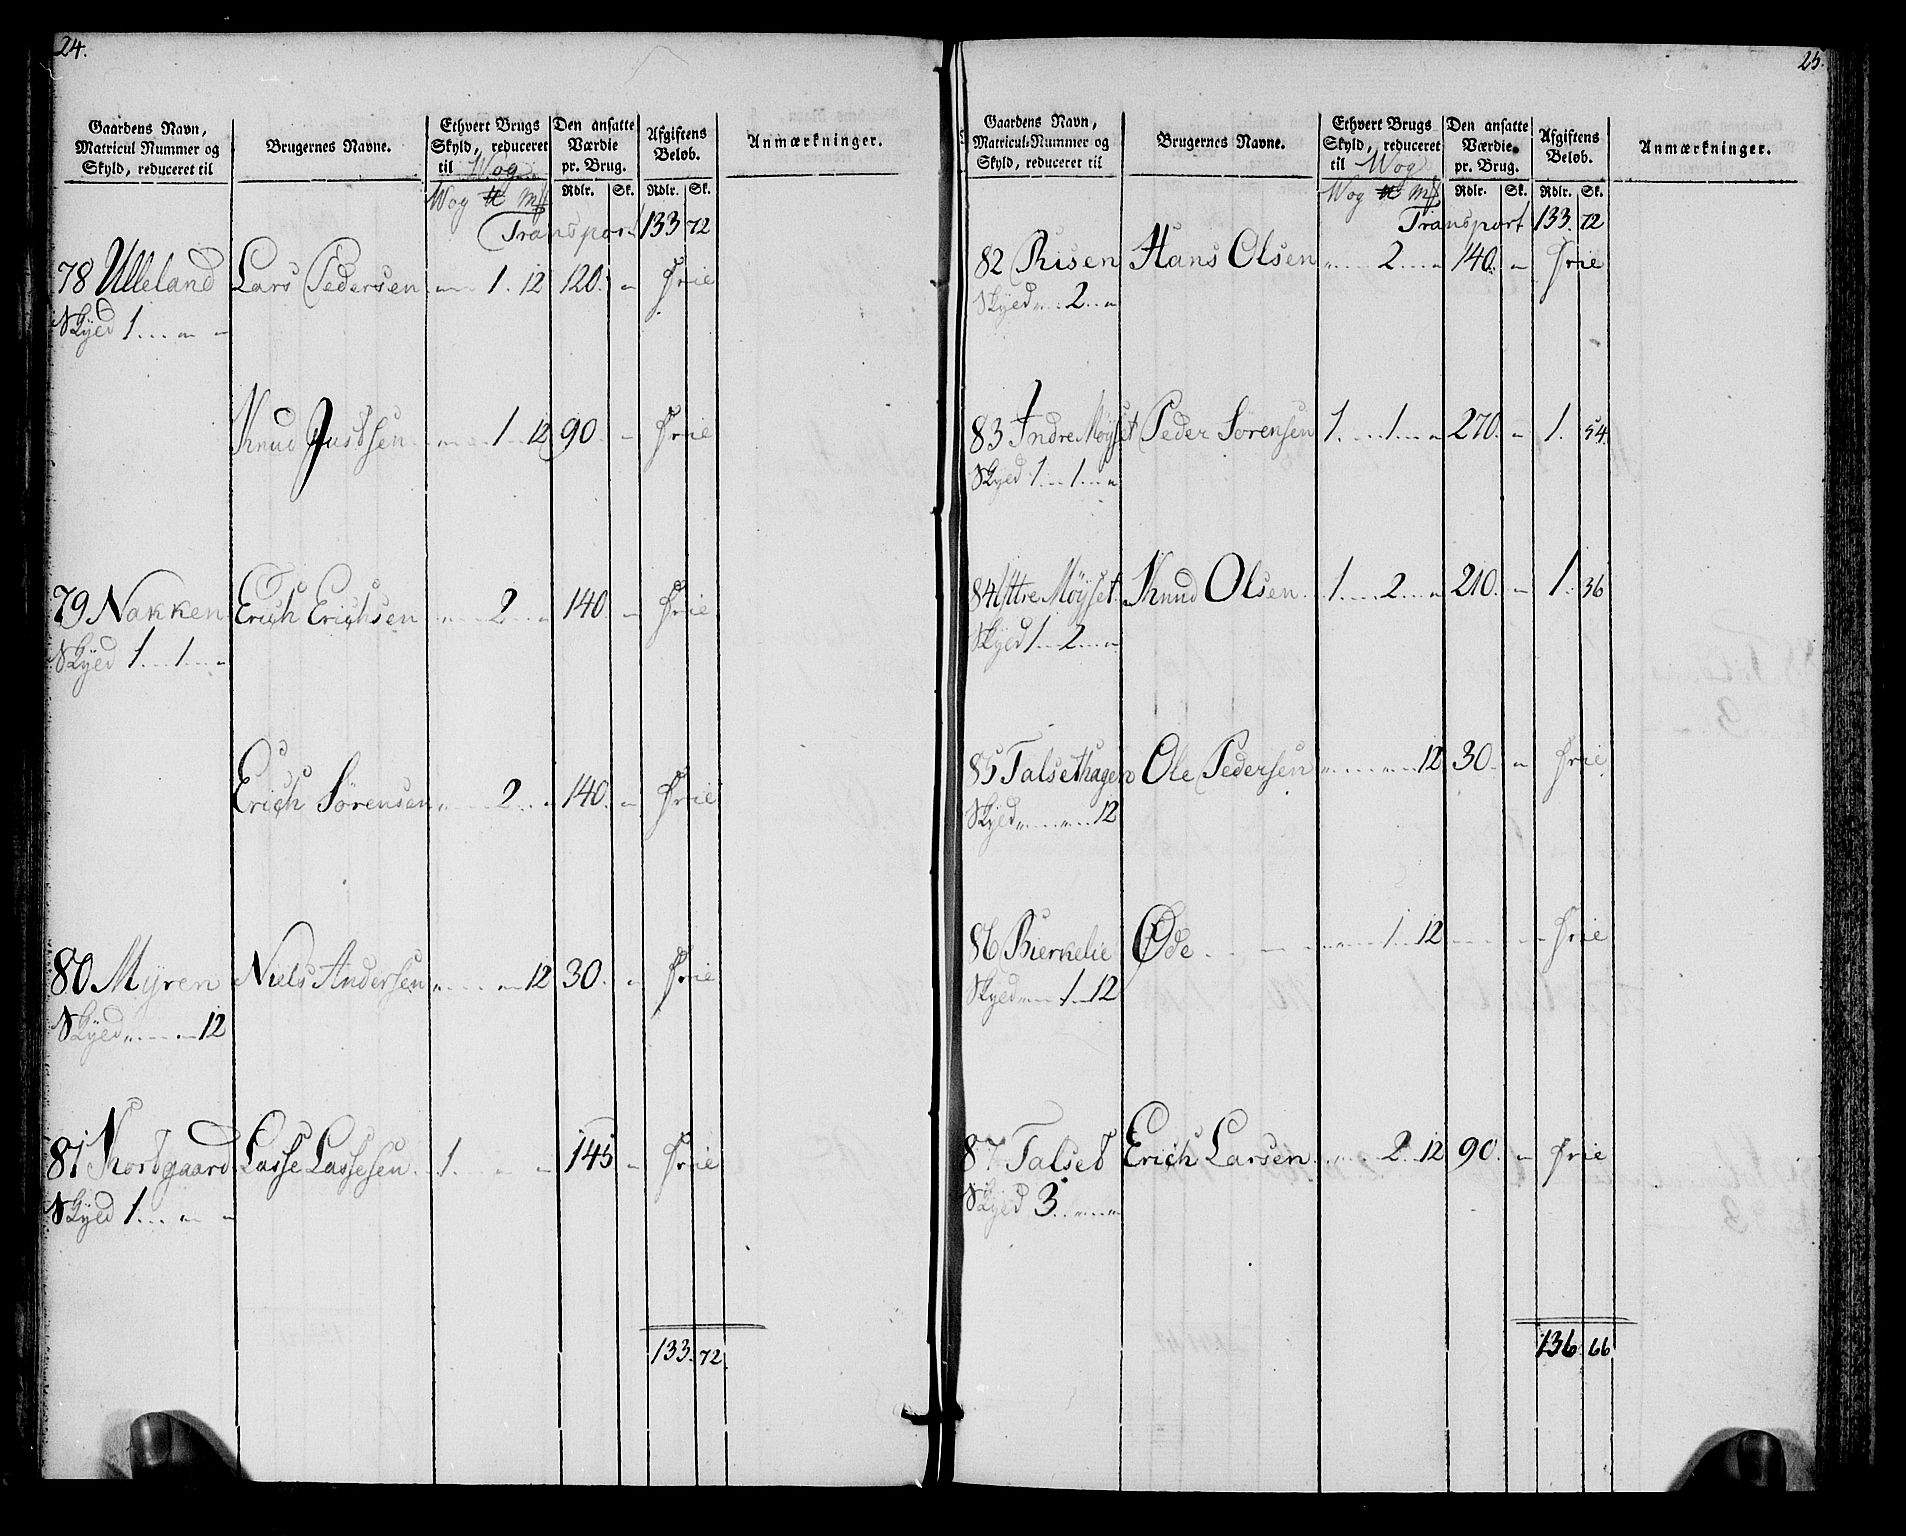 24.
Gaardens Navn, Matricul Nummer og Skyld, reduceret til
Brugernes Navne.
Ethvert Brugs Skyld, reduceret til Wog
Den ansatte Værdie pr. Brug.
Afgiftens Beløb.
Anmærkninger.
Wog ℔ Mk Rdlr. Sk. Rdlr. Sk.
Transport 133 72
78 Ulleland Lars Pedersen „ 1. 12 120. „ Frie
Skyld 1 „ „
Knud Justsen „ 1 12 90 „ Frie
79 Nakken Erich Erichsen „ 2 „ 140. „ Frie
Skyld 1 1 „
Erich Sørensen „ 2 „ 140. „ Frie
80 Myren Niels Andersen „ „ 12 30. „ Frie
Skyld „ „ 12
81 Kortgaard Lasse Lassesen 1. „ „ 145 „ Frie
Skyld 1 „ „
133. 72
25.
Gaardens Navn, Matricul-Nummer og Skyld, reduceret til
Brugernes Navne.
Ethvert Brugs Skyld, reduceret til Wog
Den ansatte Værdie pr. Brug.
Afgiftens Beløb.
Anmærkninger.
Wog ℔ Mk Rdlr. Sk. Rdlr. Sk.
Transport 133. 72
82 Risen Hans Olsen „ 2 „ 140. „ Frie
Skyld „ 2 „
83 Indre Møyset Peder Sørensen 1 1 „ 270. „ 1. 54
Skyld 1 1 „
84 Ittre Møyset Knud Olsen 1 2 „ 210. „ 1. 36
Skyld 1 2 „
85 Talsethagen Ole Pedersen „ „ 12 30. „ Frie
Skyld „ „ 12
86 Bierkelie Øde „ 1 12 „ Frie
Skyld „ 1 12
87 Talset Erich Larsen „ 2 12 90. „ Frie
Skyld 3 „ „
136. 66